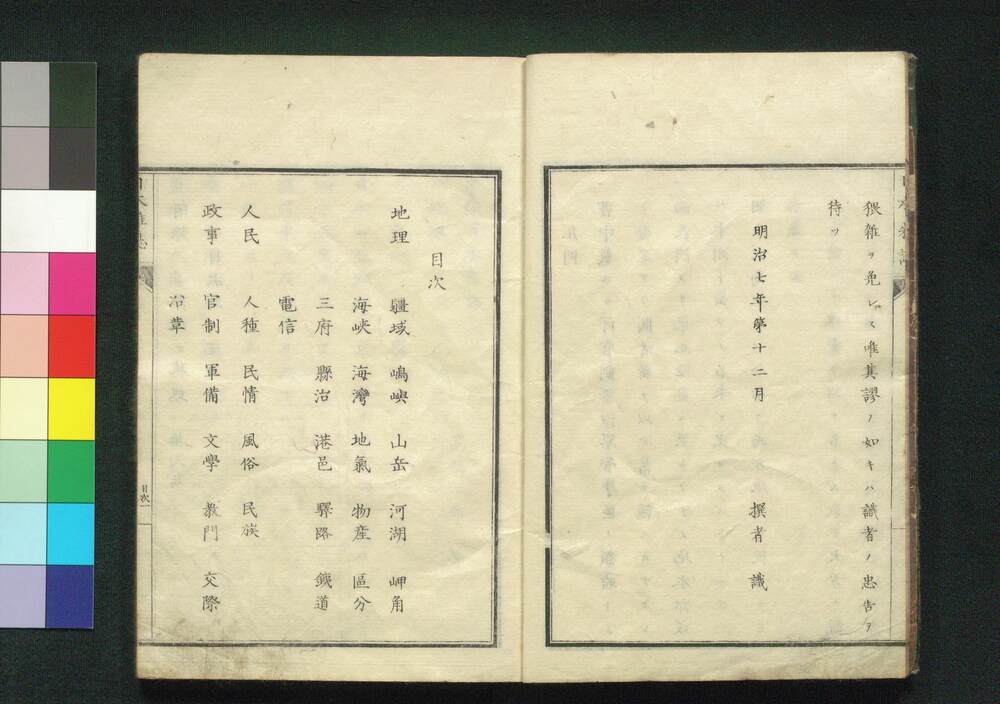 猥雜ヲ免レス唯其謬ノ如キハ識者ノ忠告ヲ
待ツ
明治七年第十二月 撰者識
目次
地理 疆域 嶋嶼 山岳 河湖 岬角
海峽 海灣 地氣 物産 區分
三府 縣治 港邑 驛路 鐵道
電信
人民 人種 民情 風俗 民族
政事 官制 軍備 文學 教門 交際
治章
目次一